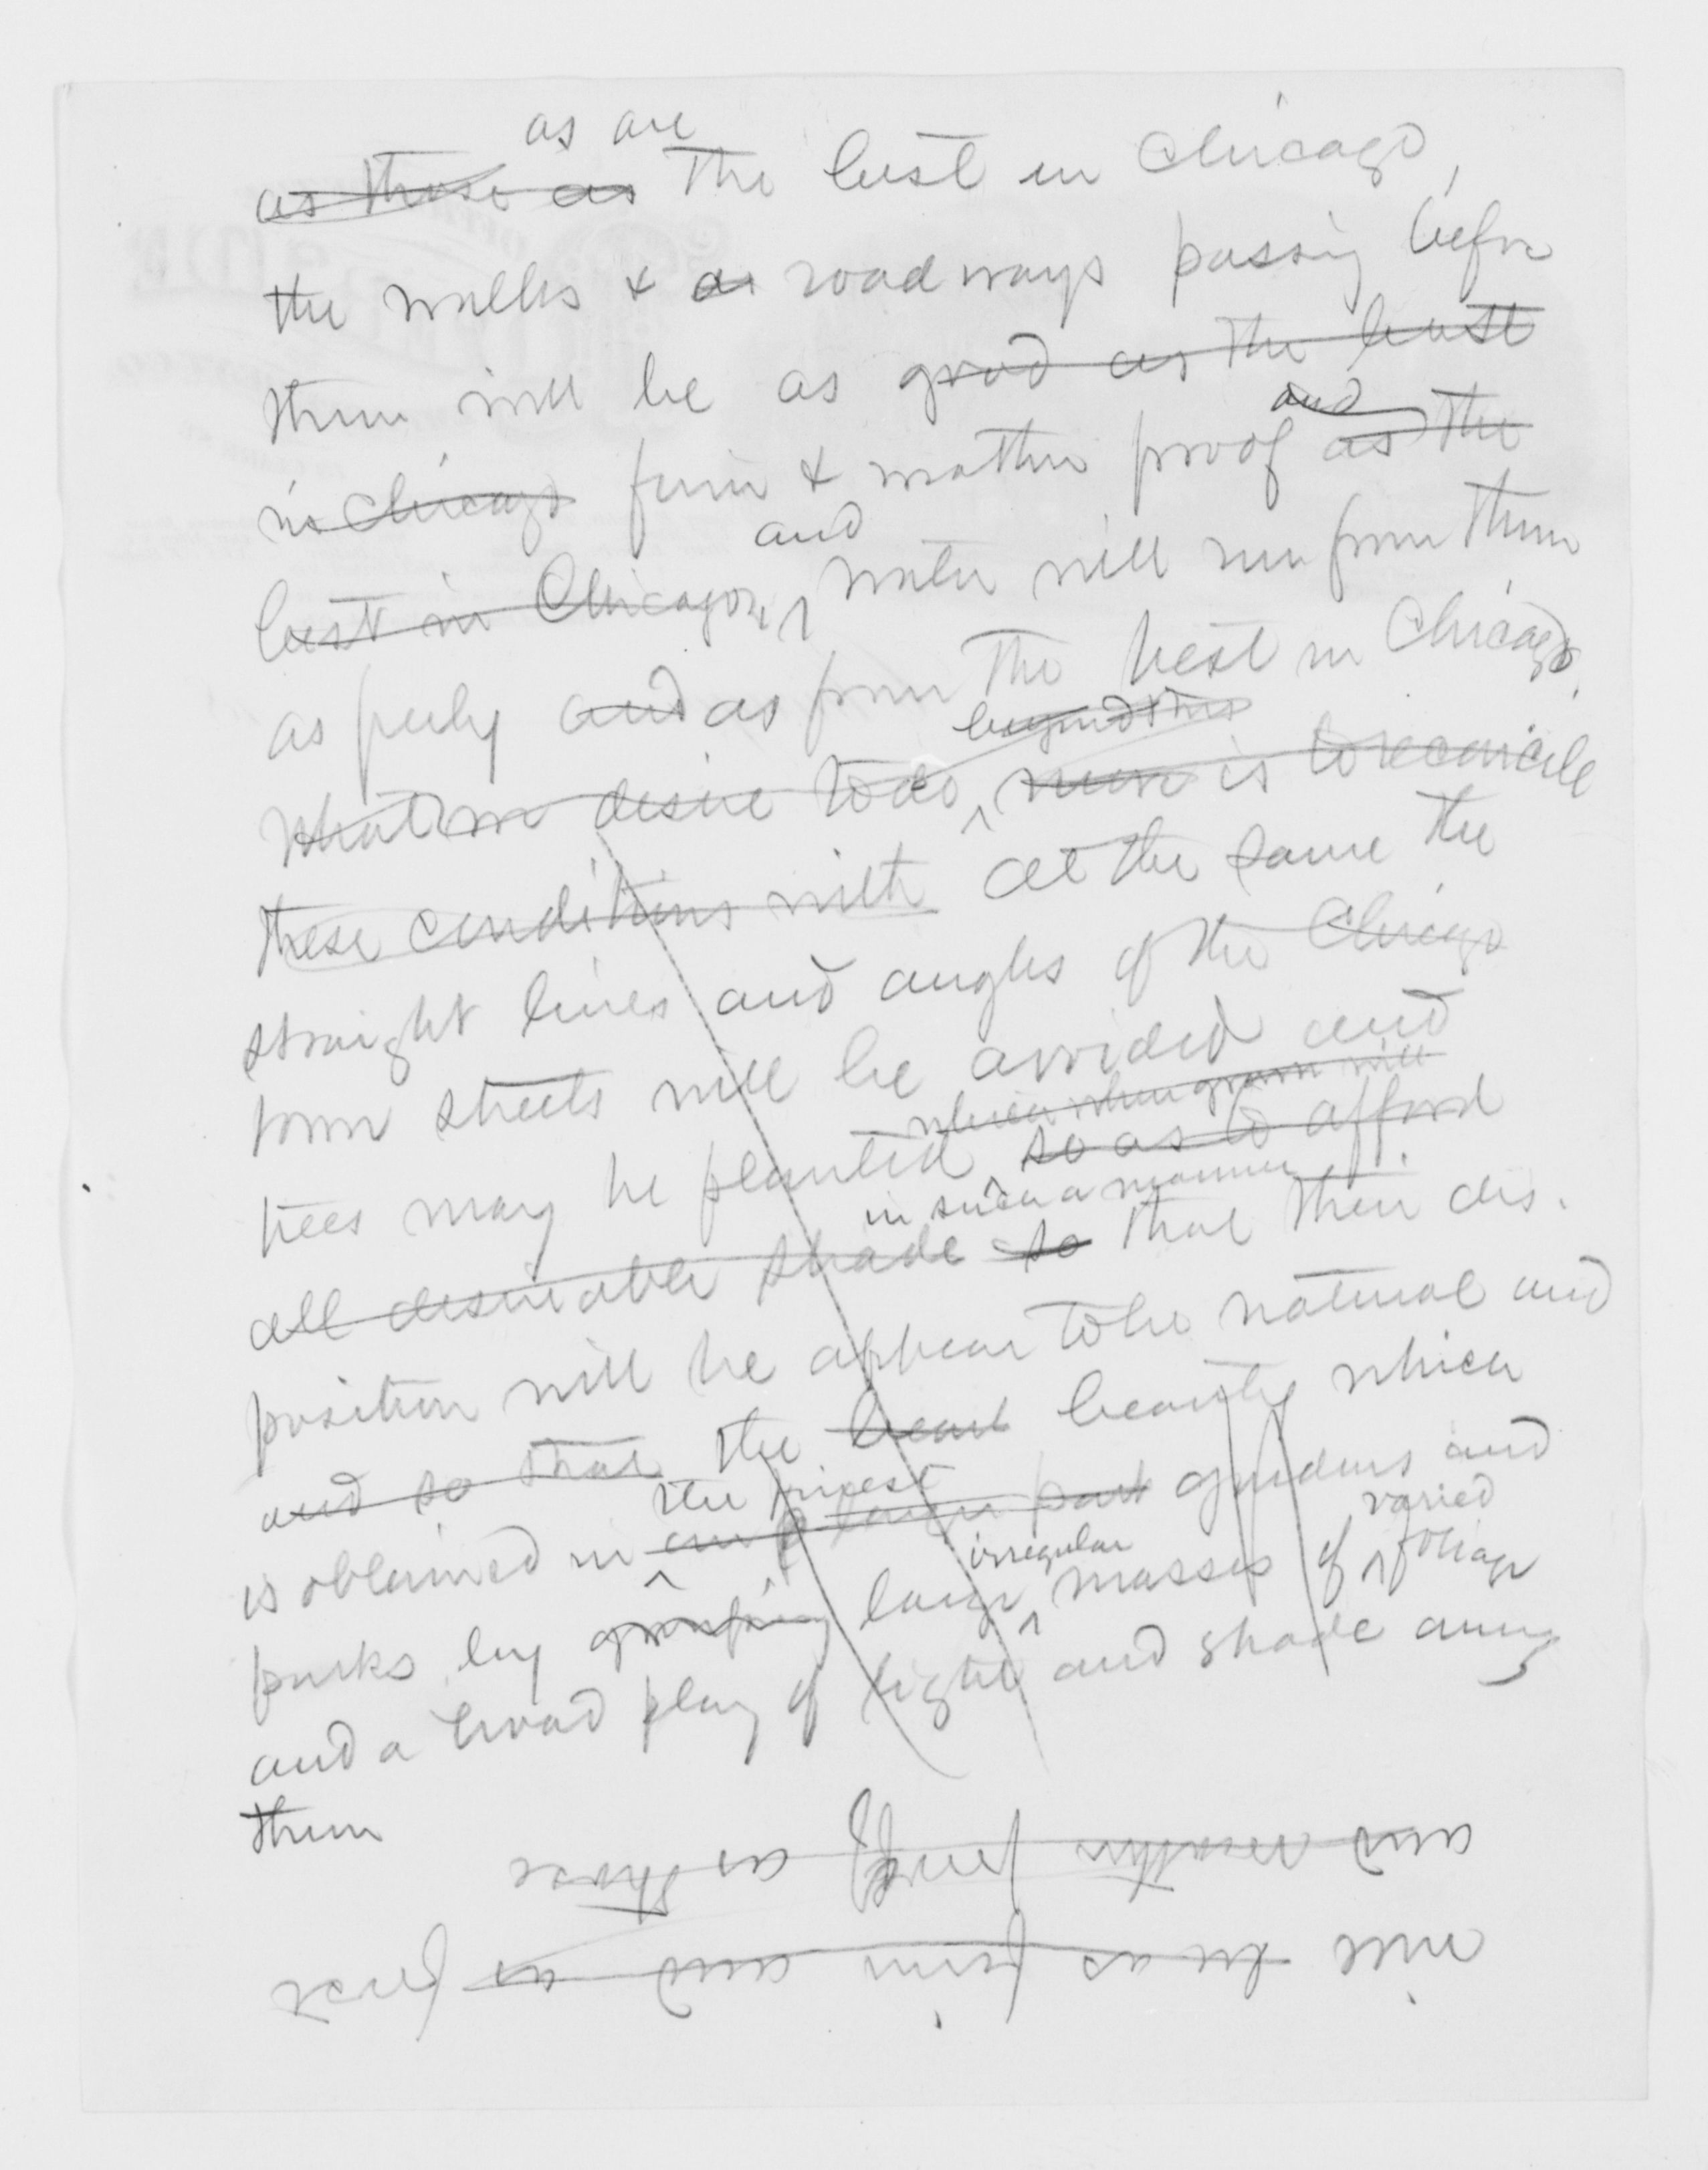 as are
as those as the best in Chicago,
the walks & as roadways passing before
them will be as good as the best
and
in Chicago firm & weather proof as the
and
best in Chicago, water will run from them
as freely and as from the best in Chicago.
beyond this
What we desire to do, is to reconcile
these conditions with at the same the
straight lines and angles of the Chicago
town streets will be avoided and
which when grown will
trees may be planted so as to afford
in such a manner
all desirable shade so that their dis-
position will be appear to be natural and
and so that the beaut beauty which
the finest
is obtained in any large part gardens and
irregular varied
parks by grouping large masses of foliage
and a broad play of light and shade among
them
will be as firm and as free
and weather proof as those